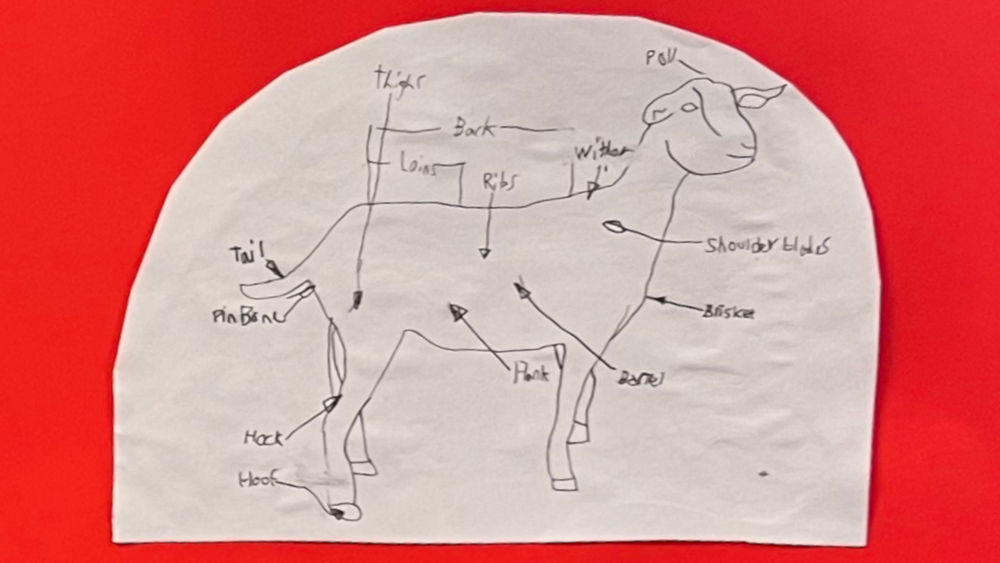 Poll
thighs
Back
Wither
Loins
Ribs
Tail
Shoulder blades
Pin Bone
Briskes
Flank
Barrel
Hock
Hoof